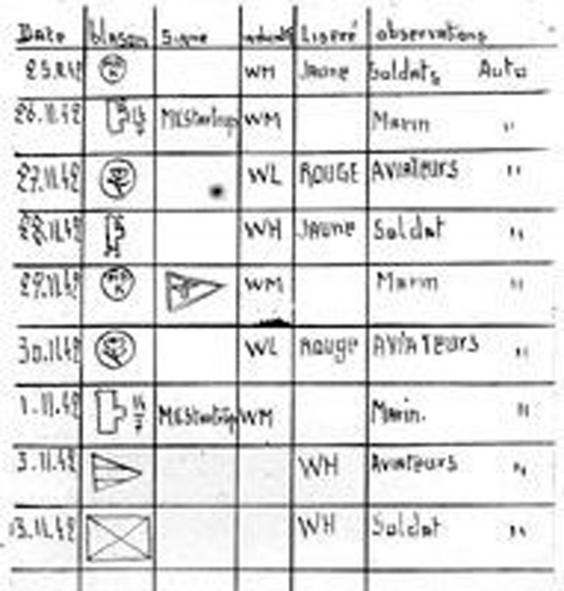 Date blason Signe Liseré observations
WM Jaune Soldats Auto
26.11.42 WM Marin "
27.11.42 WL ROUGE AVIATEURS "
28.11.42 WH Jaune Soldat "
29.11.42 WM Marin "
30.11.42 WL Rouge AVIATEURS "
1.11.42 WM Marin. "
3.11.42 WH Aviateurs "
3.11.42 WH Soldat "